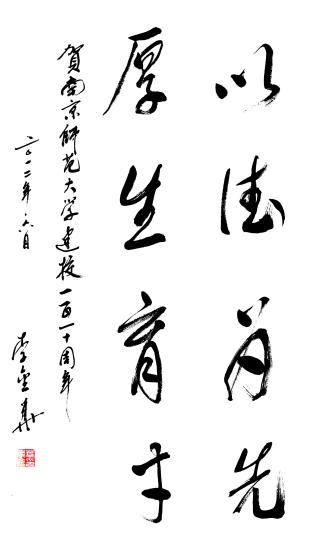 以德为先
厚生育才
贺南京师范大学建校一百一十周年
二〇一二年六月
李金华